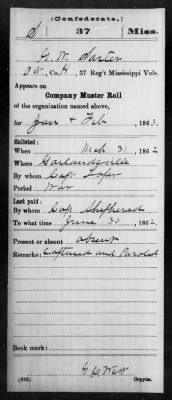 (Confederate.)
S 37 Miss.
G. W. Sarter
Co. H, 37 Reg't Mississippi Vols.
Appears on
Company Muster Roll
of the organization named above,
for Jan & Feb, 1863.
Enlisted:
When Mch 31, 1862
Where Garlandsville
By whom Capt Loper
Period War
Last paid:
By whom Cap Shepherd
To what time June 30, 1862.
Present or absent absent
Remarks: Captured and Parold
Book mark:
(642) Copyist.